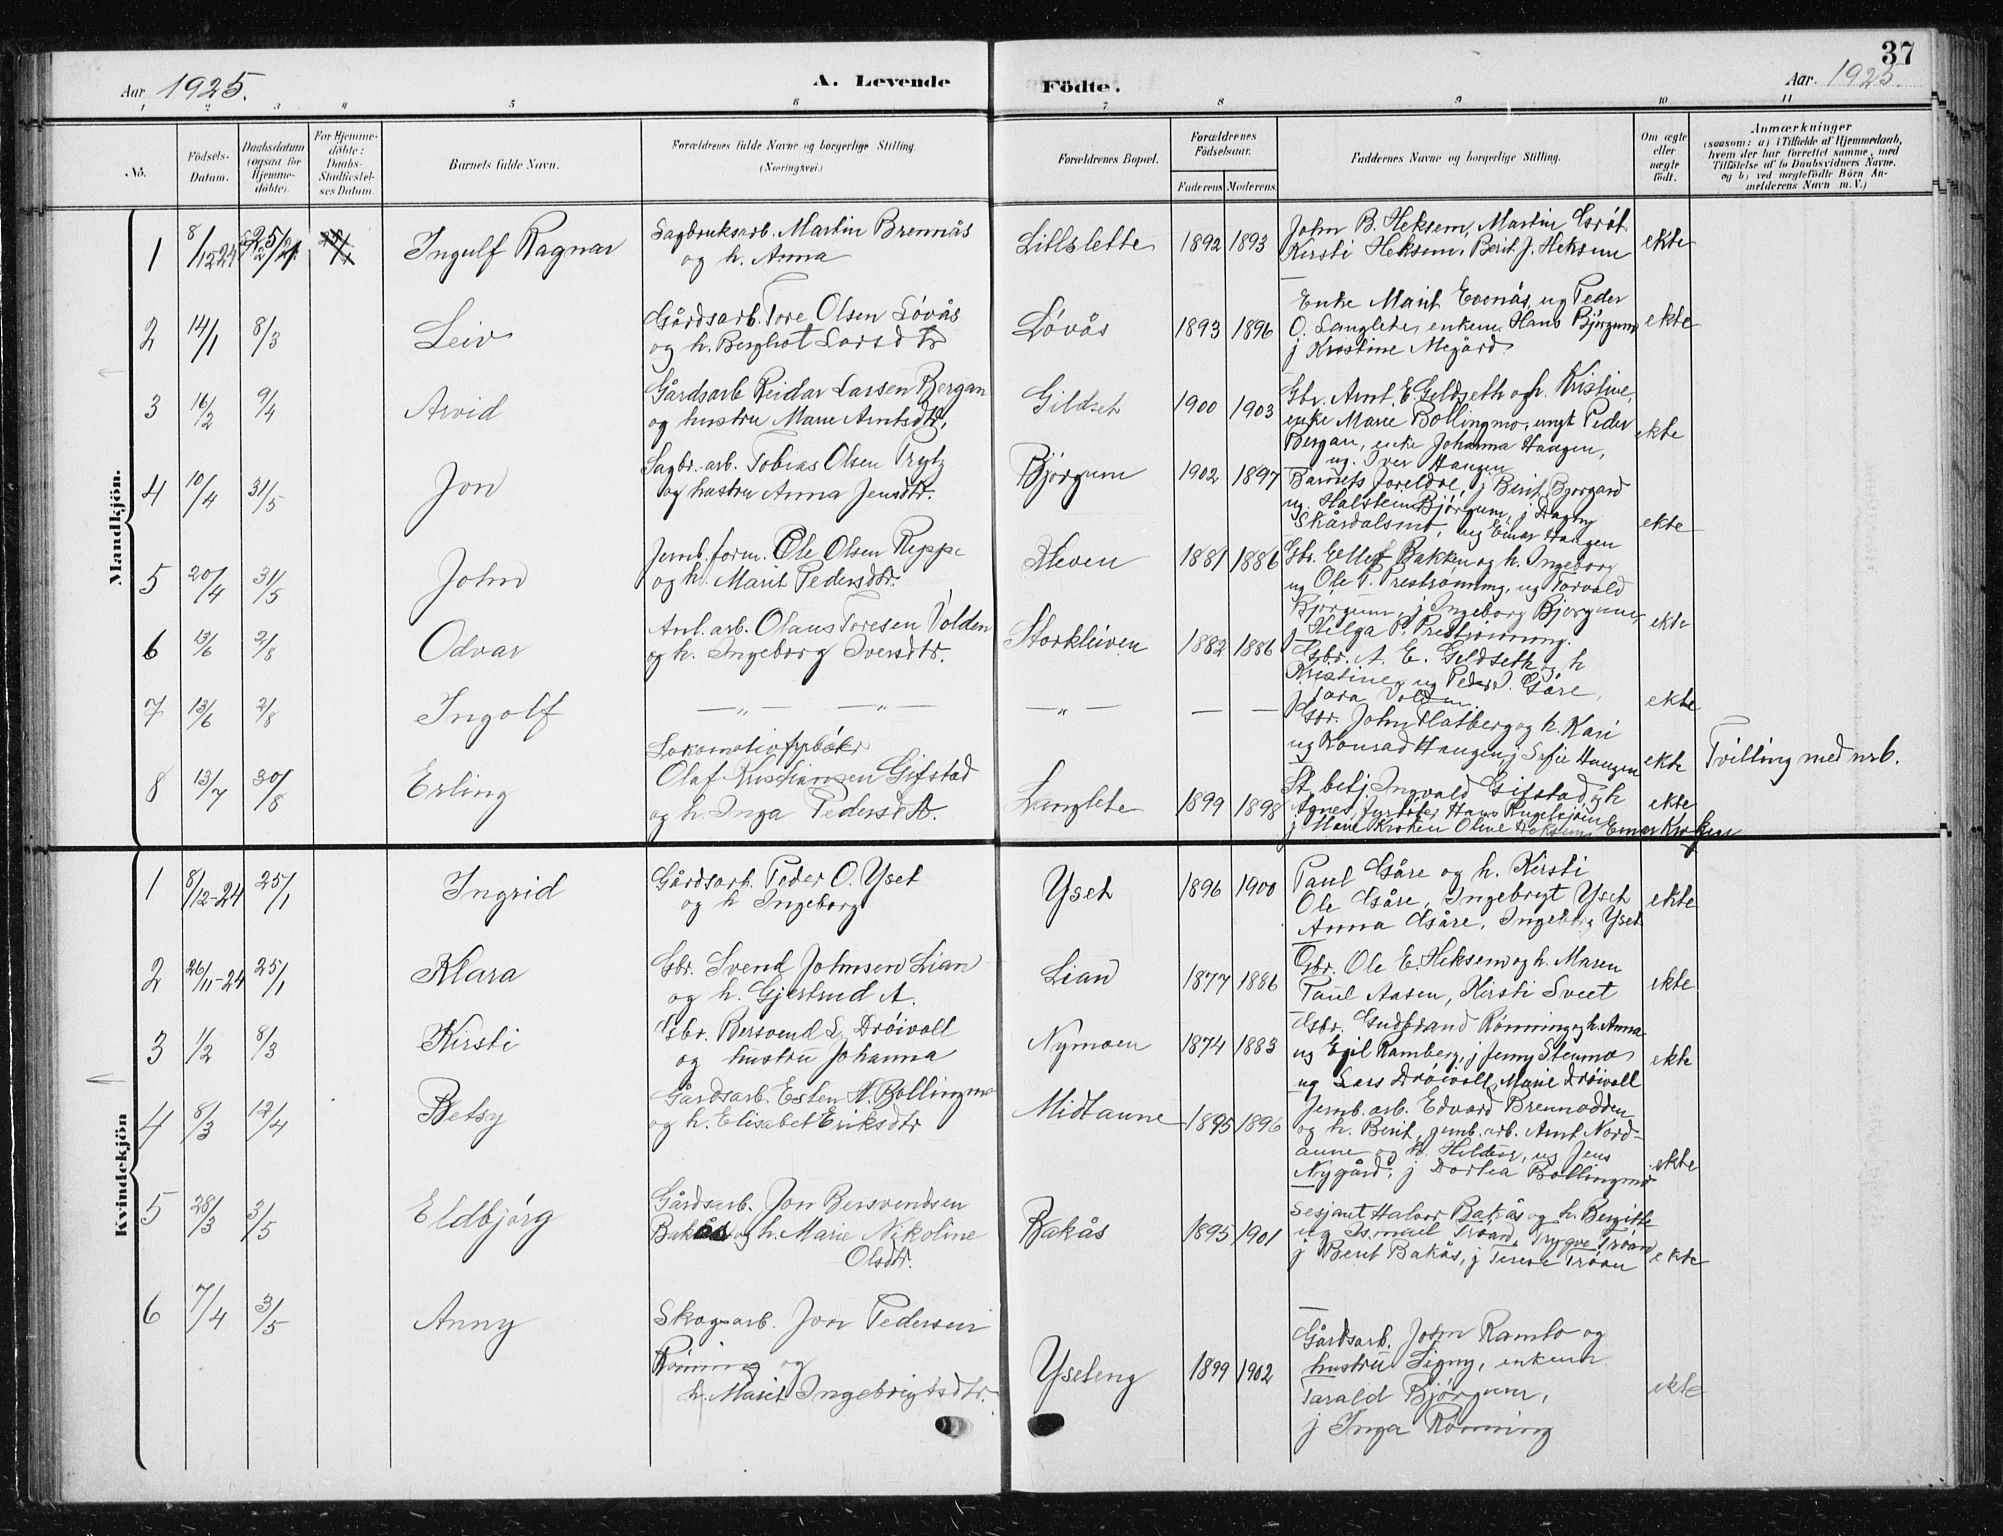 37
Aar 1925. A. Levende Födte. Aar. 1925.
1 2 3 4 5 6 7 8 9 10 11
No. Födsels-Datum. Daabsdatum (ogsaa for Hjemmedöbte). For Hjemmedöbte: Daabs-Stadfæstelses Datum. Barnets fulde Navn. Forældrenes fulde Navne og borgerlige Stilling. (Næringsvei.) Forældrenes Bopæl. Forældrenes Födselsaar. Faderens Moderens. Faddernes Navne og borgerlige Stilling. Om ægte eller uægte födt. Anmærkninger (saasom: a) i Tilfælde af Hjemmedaab, hvem der har forrettet samme, med Tilföielse af to Daabsvidners Navne, og b) ved uægtefödte Börn Anmelderens Navn m. V.)
Mandkjön.
1 8/12-24 Ingulf Ragnar Sagbruksarb. Martin Brennås
og h. Anna
Litlslette 1892 1893 John B. Heksem, Martin
Kirsti Heksem, Berit J. Heksem ekte
2 14/1 8/3 Leiv Gårdsarb. Tore Olsen Løvås
og h. Berghot Larsdtr
Løvås 1893 1896 Enke Marit Evenås, ug Peder
O. Langlete, enkem. Hans Bjørgum
j Kristine Megård ekte
3 16/2 9/4 Arvid Gårdsarb Reidar Larsen Bergan
og hustru Marie Arntsdtr,
Gildset 1900 1903 Gbr. Arnt E. Gildseth og h. Kristine,
enke Marie Bollingmo, ungk Peder
Bergan, enke Johanna Haugen,
ug. Iver Haugen ekte
4 10/4 31/5 Jon Sagbr.arb. Tobias Olsen Trytz
og hustru Anna Jensdtr.
Bjørgum 1902 1897 Barnets foreldre, j Berit Bjørgård
ug. Halstein Bjørgum, j Dagny
Skårdalsmo, ug Einar Haugen ekte
5 20/4 31/5 John Jernb.form. Ole Olsen Reppe
og h. Marit Pedersdtr.
Kleven 1881 1886 Gbr. Ellef Bakken og h. Ingeborg
ug Ole P. Prestrønning, ug Torvald
Bjørgum, j Ingeborg Bjørgum,
Helga P. Prestrønning. ekte
6 13/6 2/8 Odvar Anl. arb. Olaus Toresen Volden
og h. Ingeborg Iversdtr.
Storkleiven 1882 1886 Gbr. A. E. Gildseth og h
Kristine, ug Peder J. Gåre,
j Tora Volden. ekte
7 13/6 2/8 Ingolf — „ — — „ — — „ — — — Gbr. John Flatberg og h. Kari
ug Konrad Haugen j Sofie Haugen ekte Tvilling med nr 6.
8 13/7 30/8 Erling Lokomotivfyrbøter
Olaf Kristiansen Gifstad
og h. Inga Pedersdtr.
Langlete 1899 1898 St. betj. Ingvald Gifstad, og h
Agnes, fyrbøter Hans
j Marie Kroken Oline Heksem, Einar Kroken ekte
Kvindekjön
1 8/12-24 25/1 Ingrid Gårdsarb. Peder O. Yset
og h Ingeborg
Yset 1896 1900 Paul Gåre og h. Kirsti
Ole Gåre, Ingebrigt Yset
Anna Gåre, Ingeborg Yset ekte
2 26/11-24 25/1 Klara Gbr. Svend Johnsen Lian
og h. Gjertrud A.
Lian 1877 1886 Gbr. Ole E. Heksem og h. Maren
Paul Aasen, Kirsti Sveet ekte
3 1/2 8/3 Kirsti Gbr. Bersvend L. Drøivoll
og hustru Johanna
Nymoen 1874 1883 Gbr. Gudbrand Rønning og h. Anna
ug Egil Ramberg, j Jenny Stenmo
ug Lars Drøivoll, Marie Drøivoll ekte
4 8/3 12/4 Betsy Gårdsarb. Esten A. Bollingmo
og h. Elisabet Eriksdtr
Midtaune 1895 1896 Jernb. arb. Edvard Brennodden
og h. Berit, jernb. arb. Arnt Nord-
aune og h. Hildur, ug Jens
Nygård, j Dortea Bollingmo ekte
5 28/3 3/5 Eldbjørg Gårdsarb. Jon Bersvendsen
Bakås og h. Marie Nikoline
Olsdtr.
Bakås 1895 1901 Sesjant Halvor Bakås og h. Bergitte
ug Ismael Trøan, Trygve Trøan
j Berit Bakås, j Terese Trøan ekte
6 7/4 3/5 Anny Skogsarb. Jon Pedersen
Rønning og
h. Marit Ingebrigtsdtr.
Yseteng 1899 1902 Gårdsarb. John Ramlo og
hustru Signy, enkem.
Tarald Bjørgum,
j Inga Rønning ekte